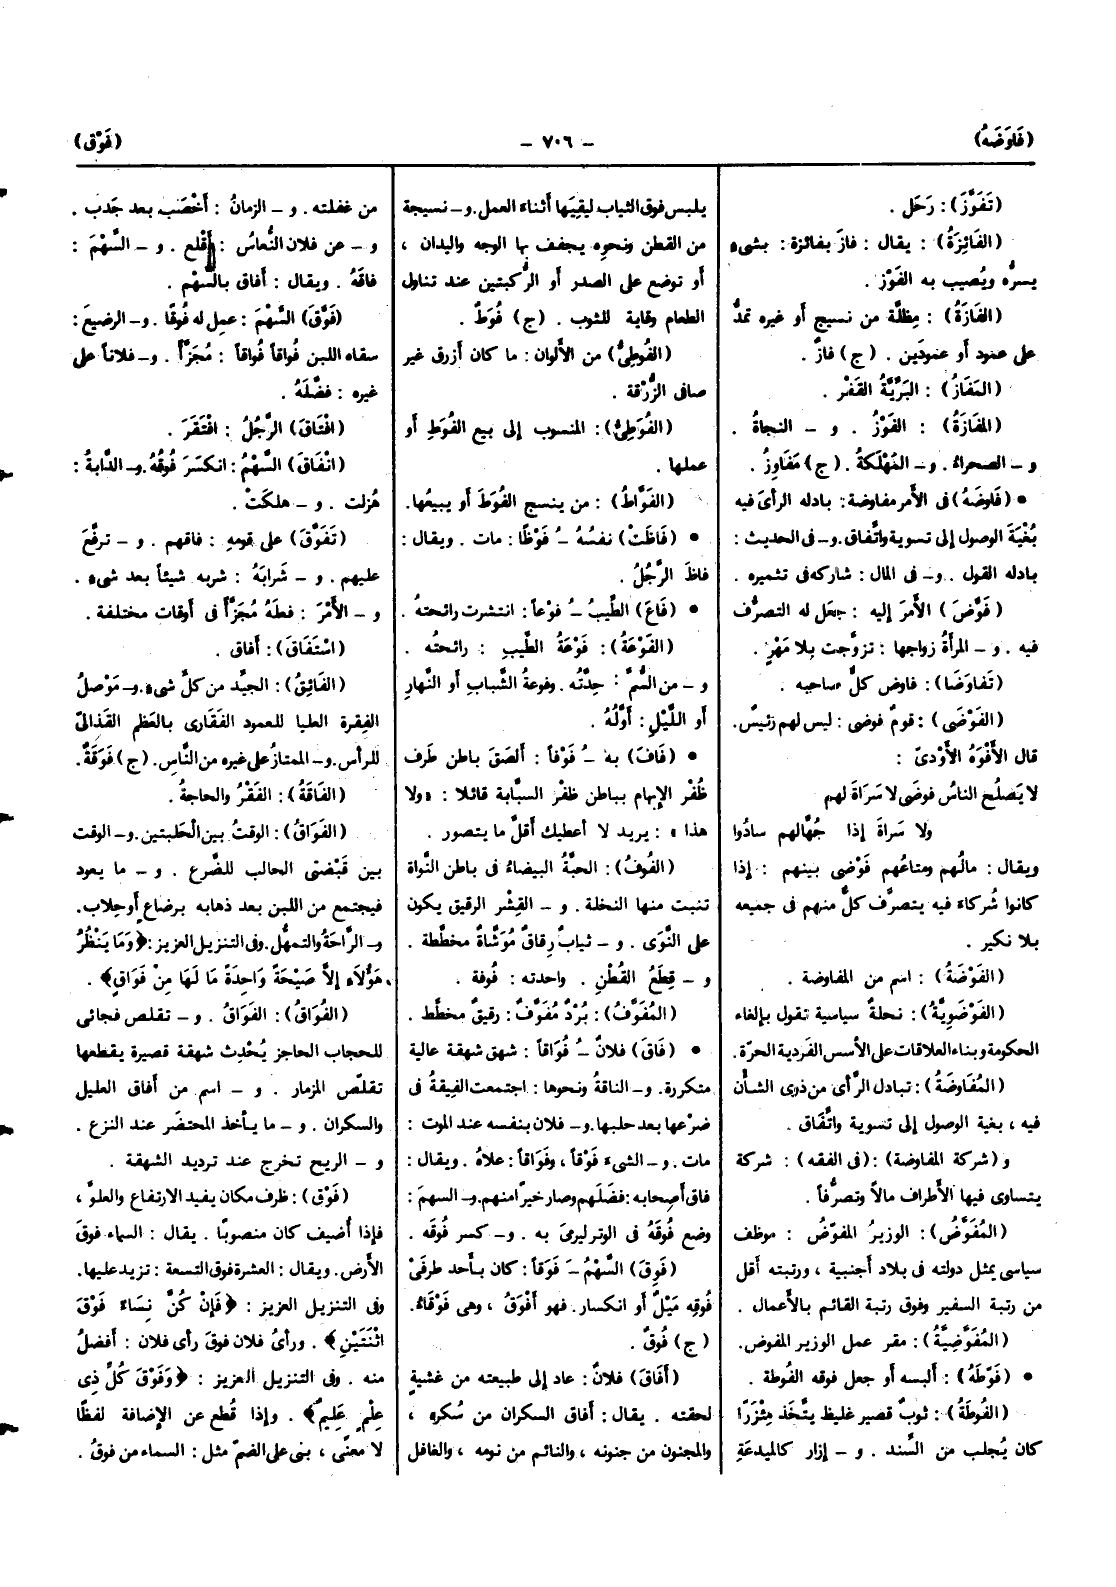 (فَاوَضَهُ)
- ٧٠٦ -
(فَوْق)
(تَفَوَّزَ): رَحَل .
(الفَائِزَةُ) : يقال : فازَ بفائزة : بشىء
يسرُّه ويُصيب به الفَوْز .
(الفَازَةُ) : مِظلَّة من نسيج أو غيره تمدُّ
على عمود أو عمودَين . (ج) فازٌ .
(المَفَازُ) : البَرَّيَّةُ القَفْر .
(المفَازَةُ) : الفَوْزُ . و – النجاةُ .
و – الصحراءُ . و– المَهْلَكةُ . (ج) مَفَاوِزُ .
• (فَاوَضَهُ) فى الأمر مفاوضة: بادله الرأىَ فيه
بُغْيَةَ الوصول إلى تسوية واتَّفاق. و– فى الحديث :
بادله القول . و– فى المال : شاركه فى تثميره .
(فَوَّضَ) الأمرَ إليه : جعَل له التصرُّف
فيه . و – المرأةُ زواجها : تزوَّجت بلا مَهْرٍ .
(تَفَاوَضَا): فاوض كلٌّ صاحبه .
(الفَوْضَى) : قومٌ فوضى : ليس لهم رئيسٌ.
قال الأَفْوَهُ الأَوْدىّ :
لا يَصلُح الناسُ فوضَى لا سَرَاةَ لهم
ولا سَراةَ إذا جُهَّالهم سادُوا
ويقال : مالُهم ومتاعُهم فَوْضى بينهم : إذا
كانوا شُركاءَ فيه يتصرَّف كلٌّ منهم فى جميعه
بلا نكير .
(الفَوْضَةُ) : اسم من المفاوضة .
(الفَوْضَوِيَّةُ) : نحلةٌ سياسية تقول بإلغاء
الحكومة وبناء العلاقات على الأسس الفَردية الحرَّة.
(المُفَاوَضَةُ) : تبادل الرَّأى من ذوى الشأن
فيه ، بغية الوصول إلى تسوية واتَّفَاق .
و (شركة المفاوضة) : (فى الفقه) : شركة
يتساوى فيها الأطراف مالاً وتصرُّفاً .
(المُفَوَّضُ) : الوزيرُ المفوّضُ : موظف
سياسى يمثل دولته فى بلاد أجنبية ، ورتبته أقل
من رتبة السفير وفوق رتبة القائم بالأعمال .
(المُفَوَّضِيَّةُ) : مقر عمل الوزير المفوض.
• (فَوَّطَهُ) : ألبسه أو جعل فوقه الفُوطة .
(الفُوطَةُ) : ثوبٌ قصير غليظ يتَّخذ مِئْزَرًا
كان يُجلب من السِّند . و – إزار كالميدعَةِ
يلبس فوق الثياب ليقِيَها أثناءَ العمل. و– نسيجة
من القطن ونحوِه يجفف بها الوجه واليدان ،
أو توضع على الصدر أو الرُّكبتين عند تناول
الطعام وقايةً للثوب . (ج) فُوَطٌ .
(الفُوطِىُّ) من الألوان : ما كان أزرق غير
صافى الزُّرْقة .
(الفُوَطِىُّ): المنسوب إلى بيع الفُوَطِ أو
عملها .
(الفَوَّاطُ) : من ينسج الفُوَطَ أو يبيعُها.
• (فَاظَتْ) نفسُهُ ـُ فَوْظًا : مات . ويقال :
فاظَ الرَّجُلُ .
• (فَاعَ) الطَّيبُ ـُ فوْعاً : انتشرت رائحتُهُ .
(الفَوْعَةُ) : فَوْعَةُ الطَّيبِ : رائحتُه .
و – من السُّم : حِدَّتُه . وفوعةُ الشَّباب أو النَّهارِ
أو اللَّيْلِ : أوَّلُهُ .
• (فَافَ) به ـُ فَوْفاً : ألصَقَ باطن طَرف
ظُفْر الإبهام بباطن ظفر السبَّابة قائلا : «ولا
هذا » : يريد لا أعطيك أقلَّ ما يتصور .
(الفُوفُ) : الحبَّةُ البيضاءُ فى باطن النَّواة
تنبت منها النخلة . و – القِشْر الرقيق يكون
على النَّوَى . و – ثيابٌ رِقاقٌ مُوَشَّاة مخطَّطة .
و – قِطَعُ القُطْنِ . واحدته : فُوفة .
(المُفَوَّفُ) : بُرْدٌ مُفَوَّفٌ : رقيقٌ مخطَّط .
• (فَاقَ) فلانٌ ـُ فُوَاقاً : شهق شهقة عالية
متكررة. و– الناقةُ ونحوها : اجتمعت الفِيقةُ فى
ضرعها بعد حلبها. و– فلان بنفسه عند الموت :
مات. و– الشىءَ فَوْقاً ، وفَوَاقاً : علاهُ . ويقال :
فاق أصحابه : فضَلَهم وصار خيراً منهم. و– السهمَ :
وضع فُوقَهُ فى الوتر ليرمىَ به . و– كسر فُوقَه .
(فَوِقَ) السَّهْمُ ـَ فَوَقاً : كان بأحد طرفَىْ
فُوقِه مَيْلٌ أو انكسار. فهو أَفْوَقُ ، وهى فَوْقَاءُ.
(ج) فُوقٌ .
(أَفَاقَ) فلانٌ : عاد إلى طبيعته من غشيةٍ
لحقته . يقال : أفاق السكران من سُكره ،
والمجنون من جنونه ، والنائم من نومه ، والغافل
من غفلته . و – الزمانُ : أَخْصَب بعد جَدب .
و – عن فلان النُّعاسُ : أقْلع . و – السَّهْمَ :
فاقَهُ . ويقال : أفاق بالسَّهْم .
(فَوَّقَ) السَّهْمَ : عمل له فُوقًا . و– الرضيعَ :
سقاه اللبن فُواقاً فُواقاً : مُجَزَّأً . و– فلاناً على
غيره : فضَّلَهُ .
(افْتَاقَ) الرَّجُلُ : افْتَقَرَ .
(انْفَاقَ) السَّهْمُ : انكسَرَ فُوقُهُ. و– الدَّابةُ :
هُزلت . و – هلكَتْ .
(تَفَوَّقَ) على قومِهِ : فاقهم . و – ترفَّعَ
عليهم . و – شَرابَهُ : شربه شيئاً بعد شىء .
و – الأمْرَ : فعلَهُ مُجَزَّأً فى أوقات مختلفة .
(اسْتَفَاقَ) : أفاق .
(الفَائِقُ) : الجيِّد من كلِّ شىء. و– مَوْصِلُ
الفِقرة العليا للعمود الفَقَارى بالعَظم القَذَالىّ
للرأس. و– الممتازُ على غيره من النَّاس. (ج) فَوَقَةٌ.
(الفَاقَةُ) : الفَقْرُ والحاجةُ .
(الفَوَاقُ) : الوقتُ بين الحَلبتين. و– الوقت
بين قَبْضَتى الحالب للضَّرع . و – ما يعود
فيجتمع من اللبن بعد ذهابه برضاع أو حِلاب.
و– الرَّاحَةُ والتمهُّل. وفى التنزيل العزيز : ﴿وَمَا يَنْظُرُ
هَؤُلاءِ إلاَّ صَيْحَةً وَاحِدَةً مَا لَهَا مِنْ فَوَاقٍ﴾ .
(الفُوَاقُ) : الفَوَاقُ . و – تقلص فجائى
للحجاب الحاجز يُحْدث شهقة قصيرة يقطعها
تقلّص المزمار . و – اسم من أفاق العليل
والسكران . و – ما يأخذ المحتضر عند النزع .
و – الريح تخرج عند ترديد الشهقة .
(فَوْق) : ظرف مكان يفيد الارتفاع والعلوّ ،
فإذا أُضيف كان منصوبًا . يقال : السماء فوقَ
الأرض. ويقال : العشرة فوق التسعة : تزيد عليها.
وفى التنزيل العزيز : ﴿فَإِنْ كُنَّ نِسَاءً فَوْقَ
اثْنَتَيْنِ﴾ . ورأىُ فلان فوقَ رأى فلان : أفضلُ
منه . وفى التنزيل العزيز : ﴿وَفَوْقَ كُلِّ ذِى
عِلْمٍ عَلِيمٌ﴾ . وإذا قُطع عن الإضافة لفظًا
لا معنًى ، بنى على الضمّ مثل : السماء من فوقُ .